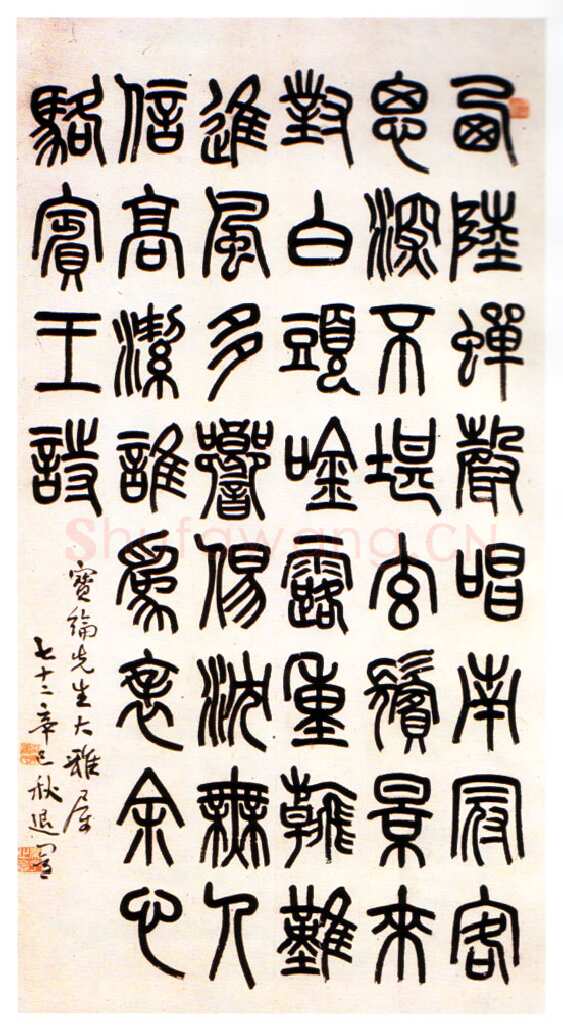 西陸蟬聲唱南冠客
思深不堪玄鬢景來
對白頭吟露重飛難
進風多響傷沈無人
信高潔誰為表余心
駱賓王詩
寶綸先生大雅屬
七十二辛巳秋退
Shufawang.CN